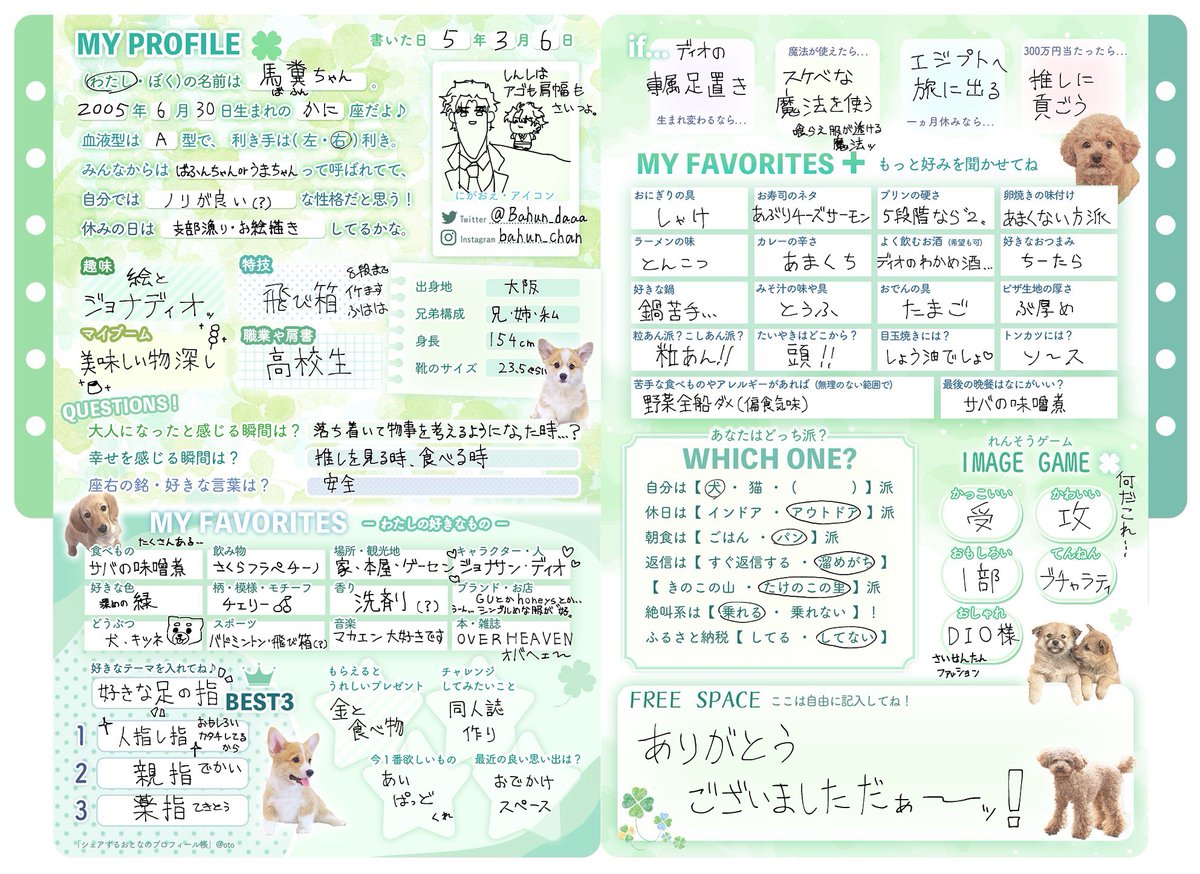 MY PROFILE
書いた日 5 年 3 月 6 日
(わたし・ぼく)の名前は 馬糞ちゃん 。
ばふん
2005 年 6 月 30 日生まれの かに 座だよ♪
血液型は A 型で、利き手は(左・右)利き。
みんなからは ばふんちゃんorうまちゃん って呼ばれてて、
自分では ノリが良い(?) な性格だと思う！
休みの日は 支部漁り・お絵描き してるかな。
しんしは
アゴも肩幅も
さいつよ。
にがおえ・アイコン
Twitter @Bahun_daaa
Instagram bahun_chan
趣味
絵と
ジョナディオッ
特技
飛び箱
8段まで
イケます
ふはは
マイブーム
美味しい物深し
職業や肩書
高校生
出身地 大阪
兄弟構成 兄・姉・私
身長 154cm
靴のサイズ 23.5ぐらい
QUESTIONS!
大人になったと感じる瞬間は？ 落ち着いて物事を考えるようになった時…?
幸せを感じる瞬間は？ 推しを見る時、食べる時
座右の銘・好きな言葉は？ 安全
MY FAVORITES ーわたしの好きなものー
たくさんある…
食べもの 飲み物 場所・観光地 キャラクター・人
サバの味噌煮 さくらフラペチーノ 家、本屋・ゲーセン ジョナサン・ディオ
好きな色 柄・模様・モチーフ 香り ブランド・お店
深めの緑 チェリー 洗剤(?) GUとかhoneysとか…
うーん… シンプルめな服が好。
どうぶつ スポーツ 音楽 本・雑誌
犬・キツネ バドミントン・飛び箱(?) マカエン大好きです OVERHEAVEN
オバヘェ〜
好きなテーマを入れてね♪
好きな足の指
BEST3
1 人指し指 おもしろい
カタチしてる
から
2 親指 でかい
3 薬指 てきとう
もらえると
うれしいプレゼント
金と
食べ物
チャレンジ
してみたいこと
同人誌
作り
今1番欲しいもの
あい
ぱっど
くれ
最近の良い思い出は？
おでかけ
スペース
「シェアするおとなのプロフィール帳」@oto
if...
ディオの
専属足置き
生まれ変わるなら…
魔法が使えたら…
スケベな
魔法を使う
喰らえ服が透ける
魔法ッ
エジプトへ
旅に出る
一ヵ月休みなら…
300万円当たったら…
推しに
貢ごう
MY FAVORITES + もっと好みを聞かせてね
おにぎりの具 お寿司のネタ プリンの硬さ 卵焼きの味付け
しゃけ あぶりチーズサーモン 5段階なら"2。 あまくない方派
ラーメンの味 カレーの辛さ よく飲むお酒(希望も可) 好きなおつまみ
とんこつ あまくち ディオのわかめ酒… ちーたら
好きな鍋 みそ汁の味や具 おでんの具 ピザ生地の厚さ
鍋苦手… とうふ たまご ぶ厚め
粒あん派？こしあん派？ たいやきはどこから？ 目玉焼きには？ トンカツには？
粒あん!! 頭!! しょう油でしょ♡ ソース
苦手な食べものやアレルギーがあれば(無理のない範囲で) 最後の晩餐はなにがいい？
野菜全船ダメ(偏食気味) サバの味噌煮
あなたはどっち派？
WHICH ONE?
自分は【 犬 ・ 猫 ・( )】派
休日は【 インドア ・ アウトドア 】派
朝食は【 ごはん ・ パン 】派
返信は【 すぐ返信する ・ 溜めがち 】
【 きのこの山 ・ たけのこの里 】派
絶叫系は【 乗れる ・ 乗れない 】！
ふるさと納税【 してる ・ してない 】
れんそうゲーム
IMAGE GAME
何だこれ…
かっこいい かわいい
受 攻
おもしろい てんねん
1部 ブチャラティ
おしゃれ
DIO様
さいせんたん
ファッション
FREE SPACE ここは自由に記入してね！
ありがとう
ございましただぁ〜ーッ!